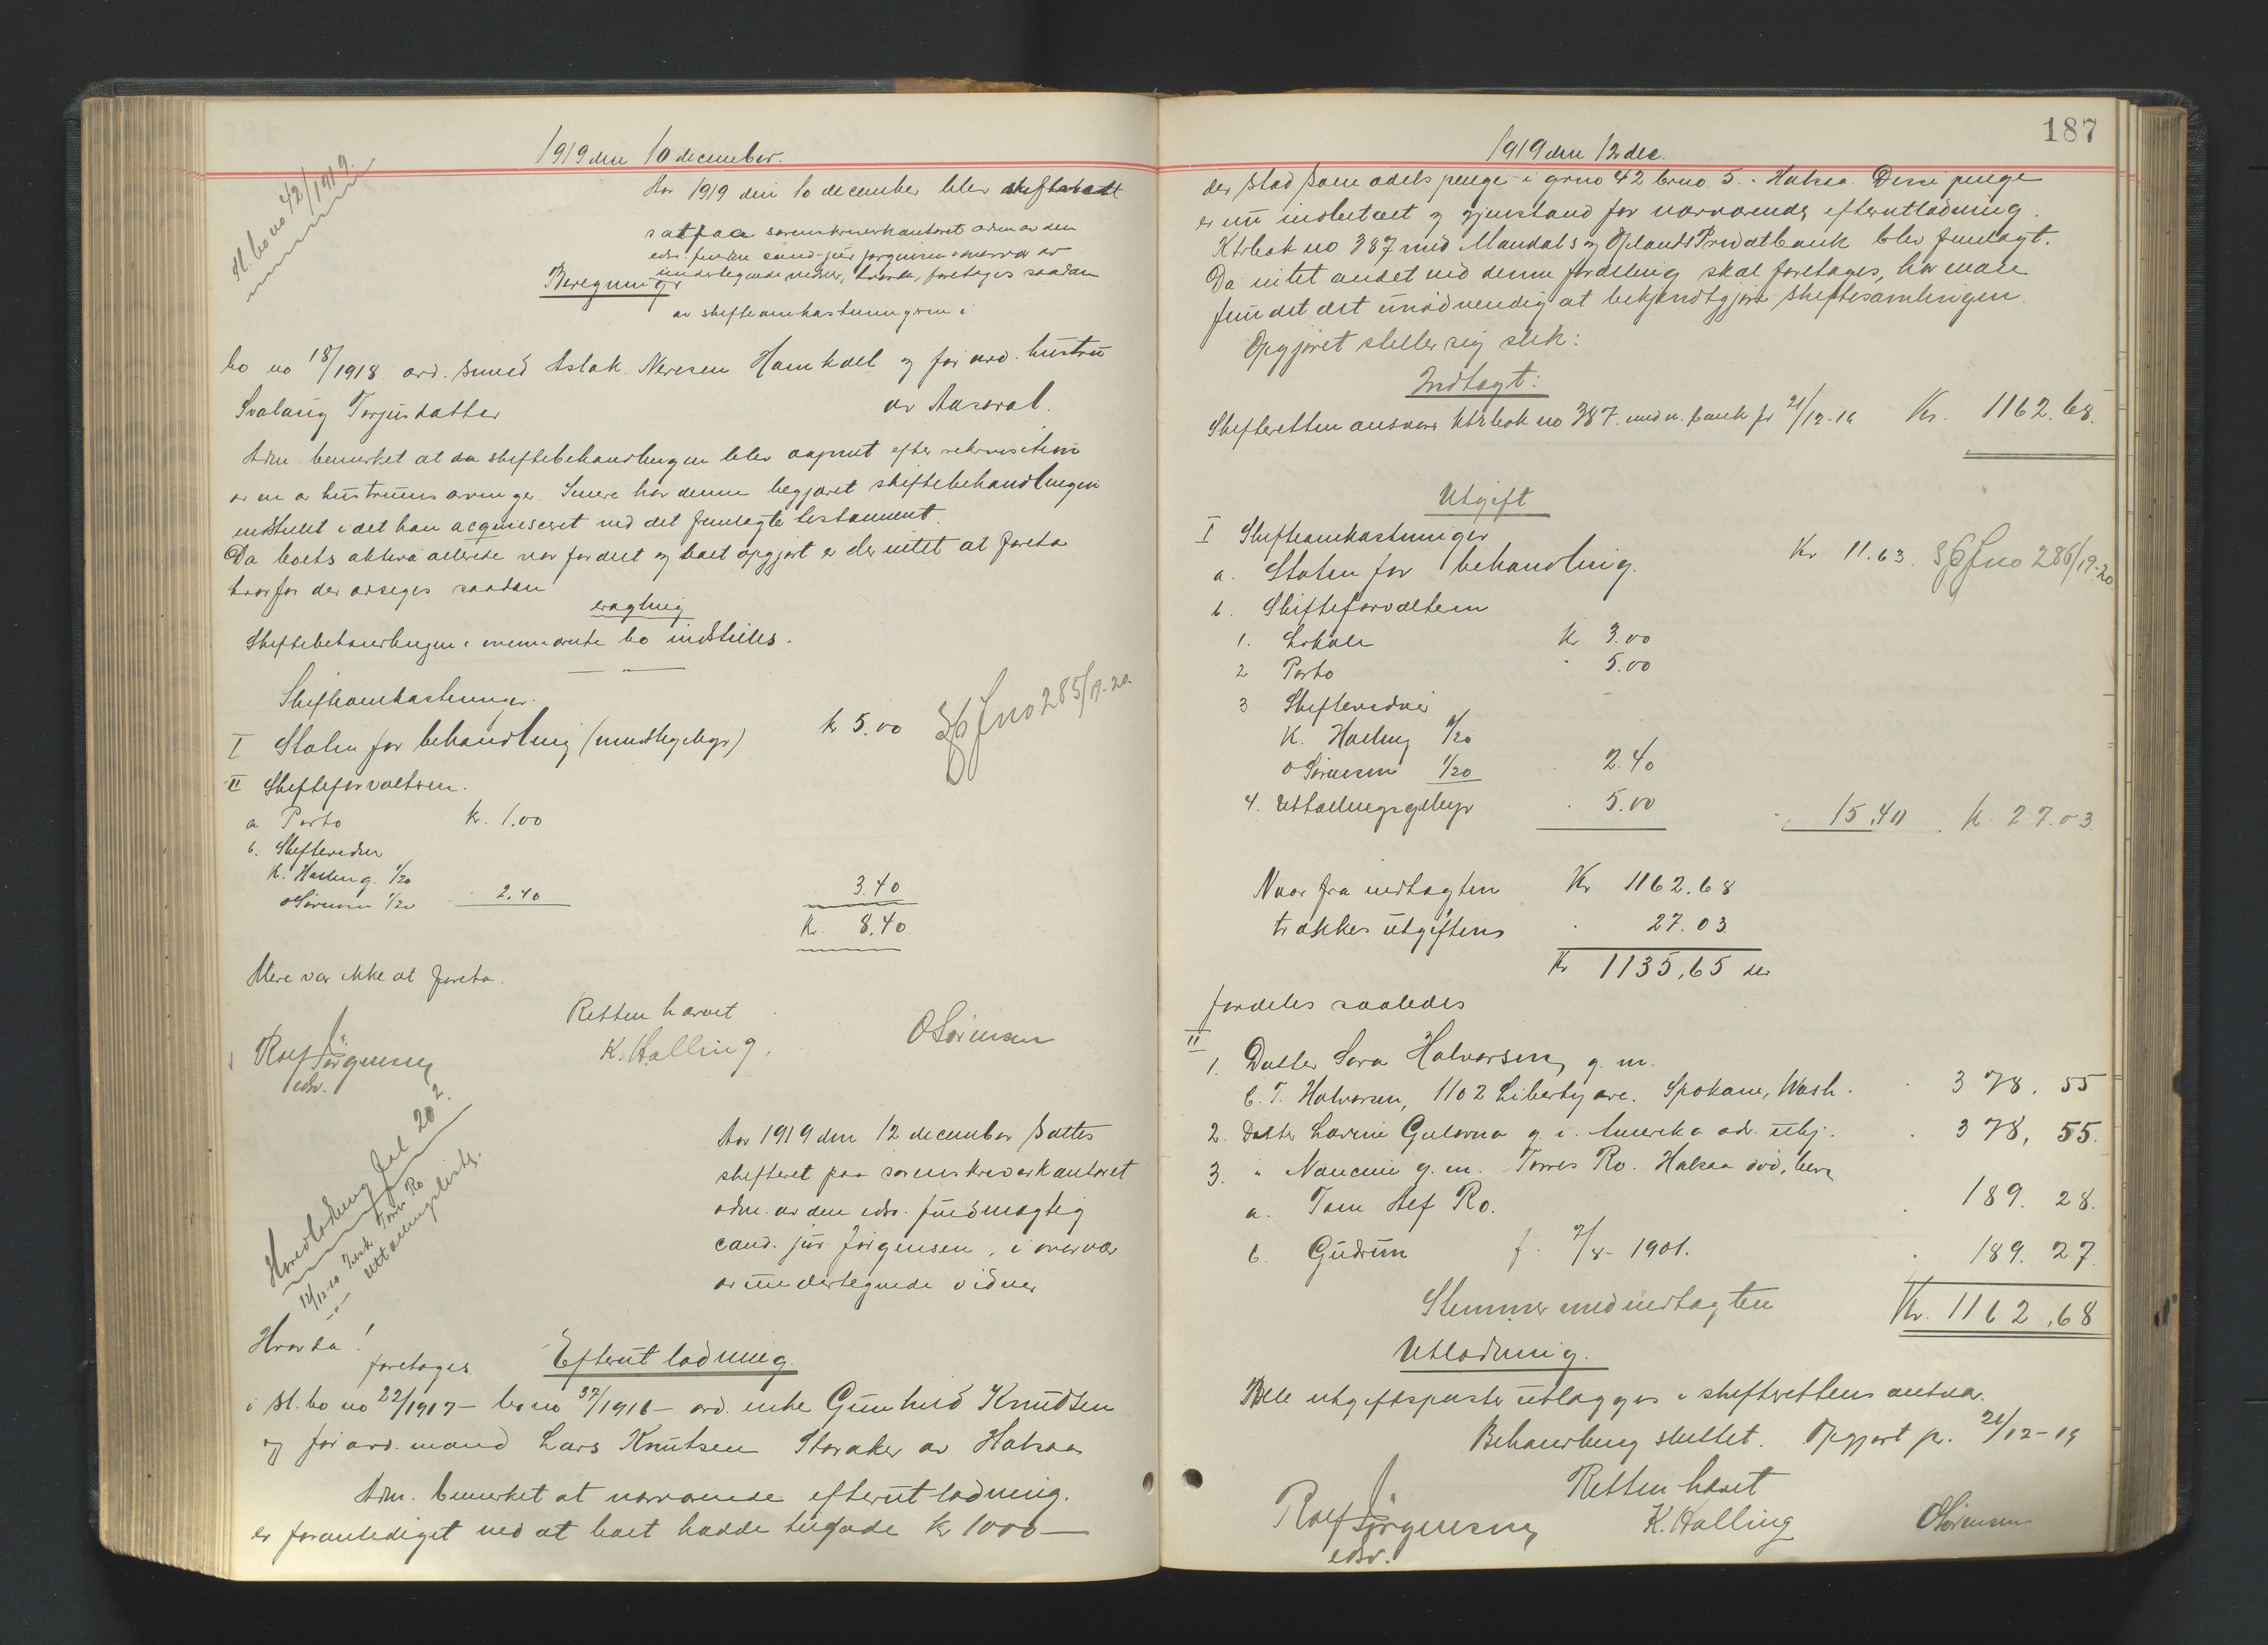 1919 den 10 december.
Sl. bo no 42/1919.
Aar 1919 den 10 december blev skifterett
sat paa sorenskriverkontoret adm av den
edsv. fuldm. cand. jur Jørgensen i overvær av
undertegnede vidner, hvorda, foretoges saadan
Beregning
av skifteomkostningerne i
bo no 18/1918 avd. smed Aslak Neresen Hamkoll og før avd. hustru
Svalaug Torjusdatter av Aaseral.
Adm. bemerket at da skiftebehandlingen blev aapnet efter rekvisition
av en av hustruens arvinger. Senere har denne begjæret skiftebehandlingen
indstillet idet han acquiesceret ved det fremlagte testament.
Da boets aktiva allerede var fordelt og boet opgjort er der intet at foreta
hvorfor der avseges saadan
eragtning
Skiftebehandlingen i ovennævnte bo indstilles.
Skifteomkostninger.
I Staten for behandling (mindstegebyr) kr 5.00 Spf Jno 285/19-20
II Skifteforvalteren.
a Porto kr. 1.00
b. Skiftevidner
K. Halling. 1/20
O Sørensen 1/20 2.40 3.40
Kr. 8.40
Mere var ikke at foreta.
Retten hævet
Rolf Jørgensen K. Halling. O Sørensen
edsv.
Hovedlodning fol 202.
12/12-10 Tønnes Ro
utlodningsliste.
Aar 1919 den 12 december sattes
skifteret paa sorenskriverkontoret
adm. av den edsv. fuldmægtig
cand. jur. Jørgensen, i overvær
av undertegnede vidner
Hvorda!
foretoges Efterutlodning.
i sl. bo no 22/1917 - bo no 37/1916 - avd. enke Gunhild Knudsen
og før avd. mand Lars Knutsen Storaker av Halsaa
Adm. bemerket at nærværende efterutlodning.
er foranlediget ved at boet hadde tilgode kr 1000 -
187
1919 den 12 dec.
der stod som odelspenge i grno 42 brno 5. i Halsaa. Disse penge
er nu indbetalt og gjenstand for nærværende efterutlodning.
Ktrbok no 387 med Mandals og Oplands Privatbank blev fremlagt.
Da intet andet end denne fordeling skal foretages, har man
fundet det unødvendig at bekjendtgjøre skiftesamlingen.
Opgjøret stiller sig slik:
Indtægt:
Skifteretten ansvar ktrbok no 387 med n. bank pr 21/12-19 Kr. 1162.68.
Utgift
I Skifteomkostninger
a. Staten for behandling. Kr 11.63. Spf Jno 286/19-20
b. Skifteforvalteren
1. Lokale kr 3.00
2 Porto 5.00
3 Skiftevidner
K. Halling 1/20
O Sørensen 1/20 2.40
4. Utlodningsgebyr 5.00 15.40 k. 27.03.
Naar fra indtægten Kr 1162.68
trækkes utgiftens 27.03
Kr 1135.65 der
fordeles saaledes
II
1. Datter Sara Halvorsen g. m.
C. T. Halvorsen, 1102 Liberty ave. Spokane, Wash. 378.55
2. Datter Lovine Gulovna g. i. Amerika adr. ubkj. 378,55.
3. " Nancine g. m. Tønnes Ro. Halsaa død, barn
a. Tom Alf Ro. 189.28.
b. Gudrun f. 7/8-1901. 189.27
Stemmer med indtægten Kr. 1162.68
Utlodning.
Alle utgiftsposter utlægges i skifterettens ansvar.
Behandling sluttet. Opgjort pr. 21/12-19
Retten hævet
Rolf Jørgensen K. Halling O Sørensen
edsv.